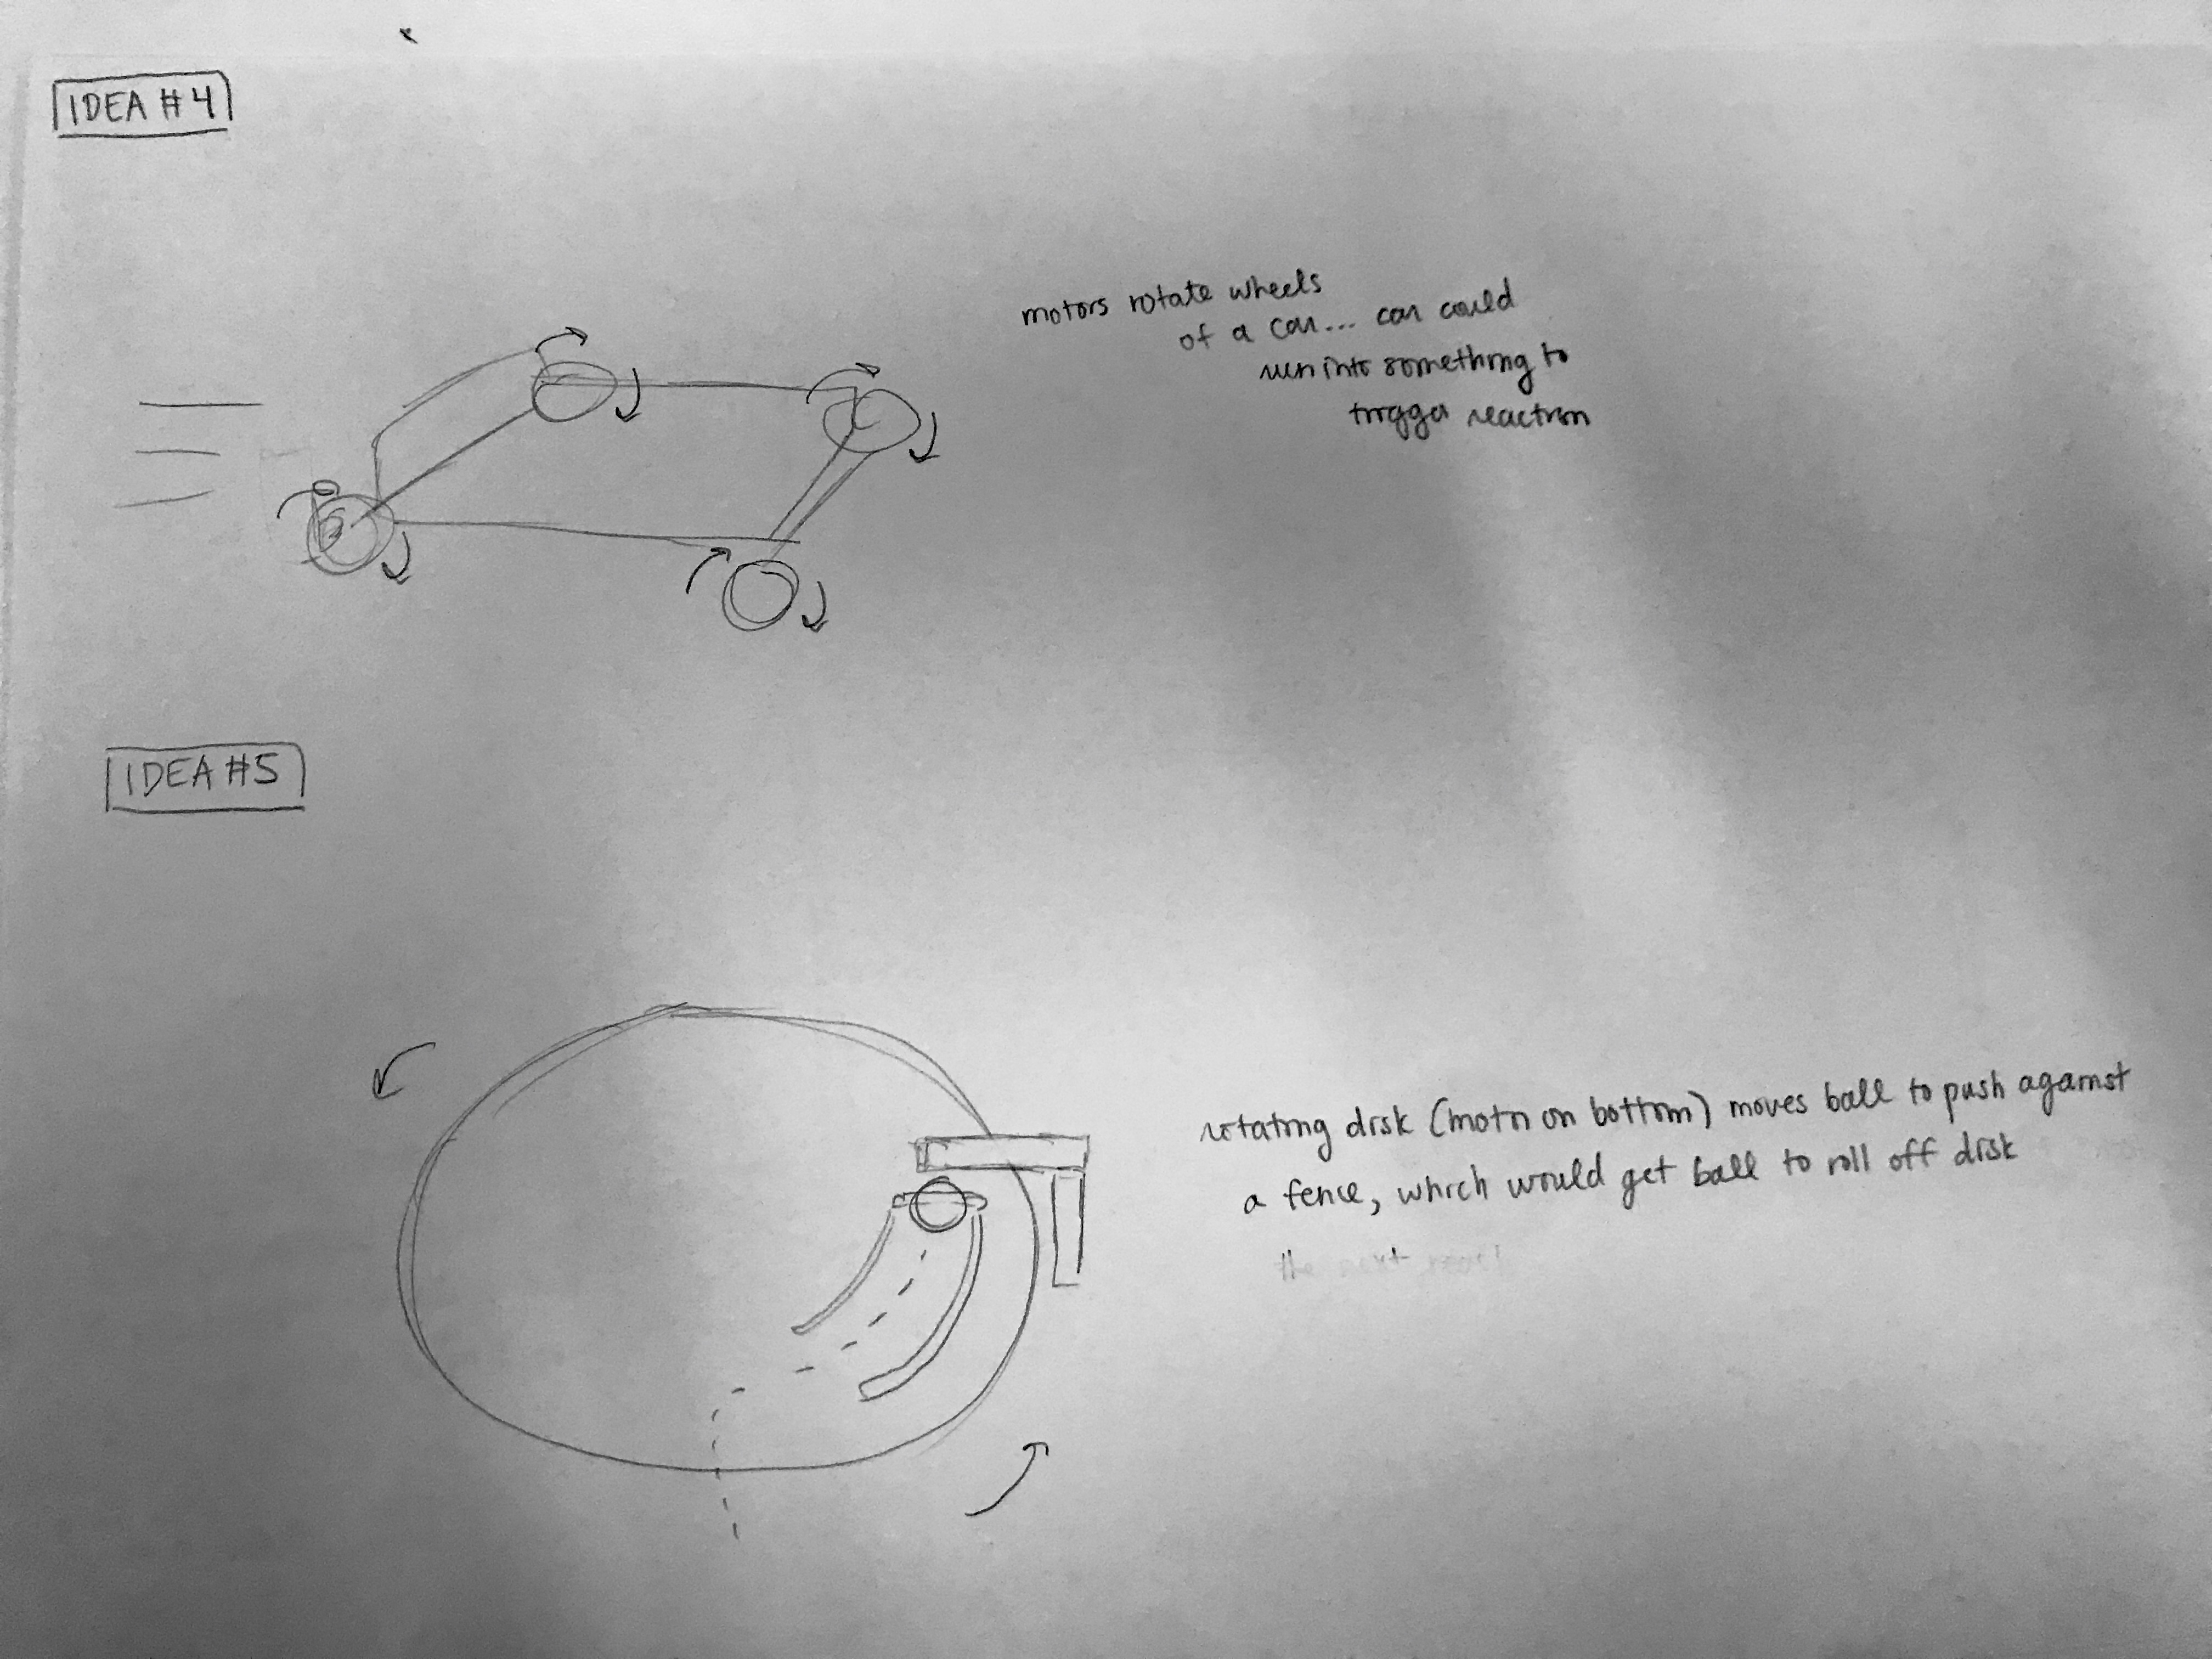 IDEA #4
motors rotate wheels
of a car... car could
run into something to
trigger reaction
IDEA #5
rotating disk (motor on bottom) moves ball to push against
a fence, which would get ball to roll off disk
the next